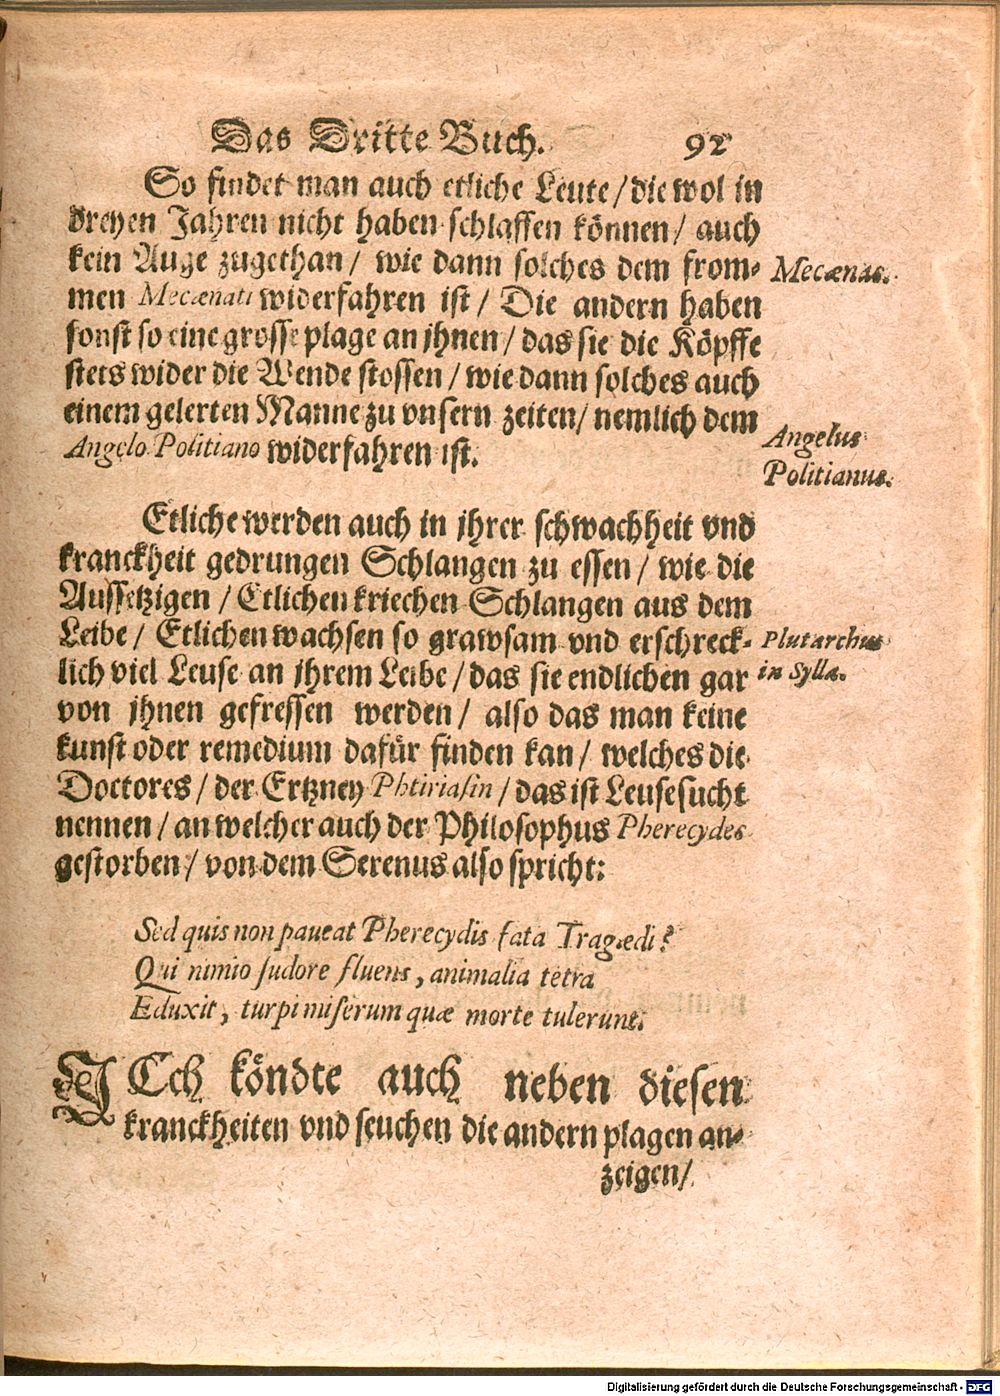 Das Dritte Buch. 92
So findet man auch etliche Leute / die wol in
dreyen Jahren nicht haben schlaffen können / auch
kein Auge zugethan / wie dann solches dem from-
Mecænas.
men Mecænati widerfahren ist / Die andern haben
sonst so eine grosse plage an jhnen / das sie die Köpffe
stets wider die Wende stossen / wie dann solches auch
einem gelerten Manne zu vnsern zeiten / nemlich dem
Angelus
Angelo Politiano widerfahren ist.
Politianus.
Etliche werden auch in jhrer schwachheit vnd
kranckheit gedrungen Schlangen zu essen / wie die
Aussetzigen / Etlichen kriechen Schlangen aus dem
Leibe / Etlichen wachsen so grawsam vnd erschreck-
Plutarchus
lich viel Leuse an jhrem Leibe / das sie endlichen gar
in Sylla.
von jhnen gefressen werden / also das man keine
kunst oder remedium dafür finden kan / welches die
Doctores / der Ertzney Phtiriasin / das ist Leusesucht
nennen / an welcher auch der Philosophus Pherecydes
gestorben / von dem Serenus also spricht:
Sed quis non paueat Pherecydis fata Tragædi?
Qui nimio sudore fluens, animalia tetra
Eduxit, turpi miserum quæ morte tulerunt.
ICh köndte auch neben diesen
kranckheiten vnd seuchen die andern plagen an-
zeigen /
Digitalisierung gefördert durch die Deutsche Forschungsgemeinschaft - DFG